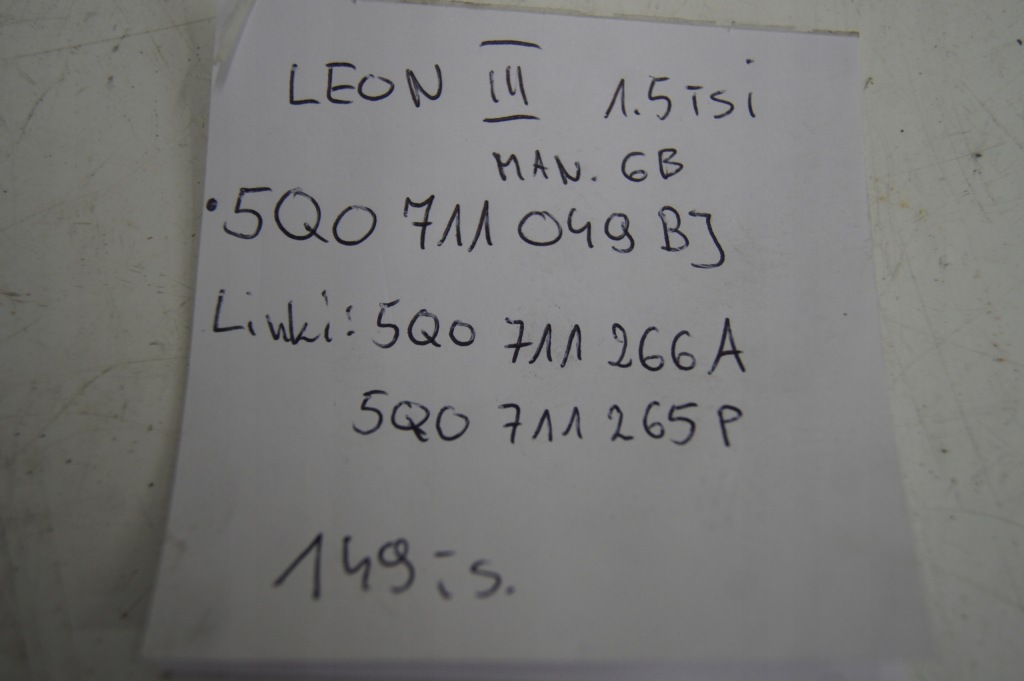 LEON III 1.5 TSi
MAN. 6B
·5Q0 711 049 BJ
Linki: 5Q0 711 266 A
5Q0 711 265 P
149 :- s.